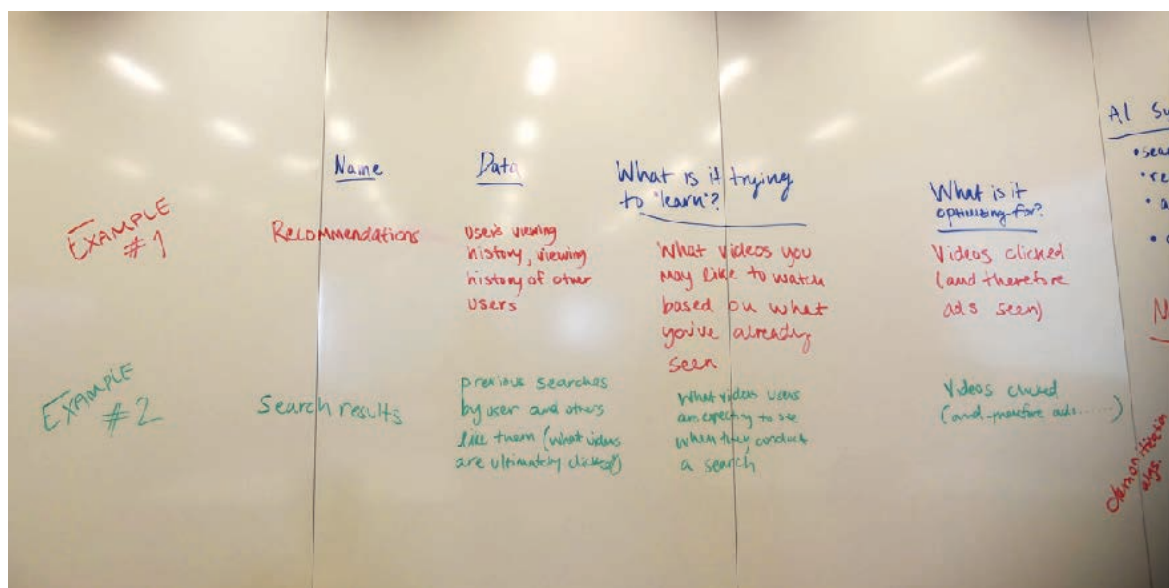 Name
Data
What is it trying
to "learn"?
What is it
optimizing for?
EXAMPLE
#1
Recommendations
user's viewing
history, viewing
history of other
users
What videos you
may like to watch
based on what
you've already
seen
Videos clicked
(and therefore
ads seen)
EXAMPLE
#2
Search results
previous searches
by user and others
like them (what videos
are ultimately clicked)
What videos users
are expecting to see
when they conduct
a search
Videos clicked
(and therefore ads......)
AI Su
• sear
• re
• a
•
N
algs.